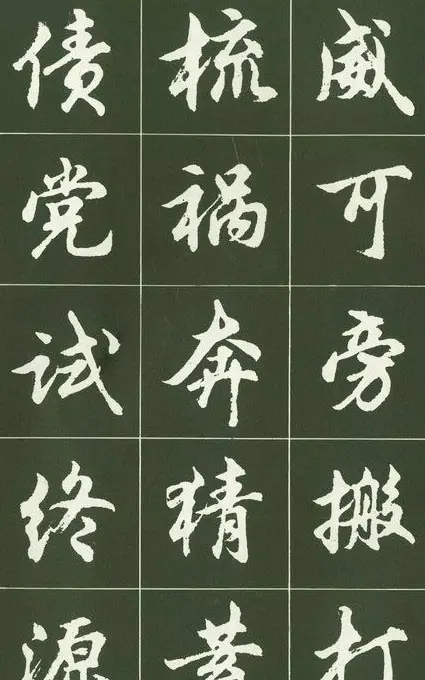 威可旁搬打
梳祸奔猜
债党试终源